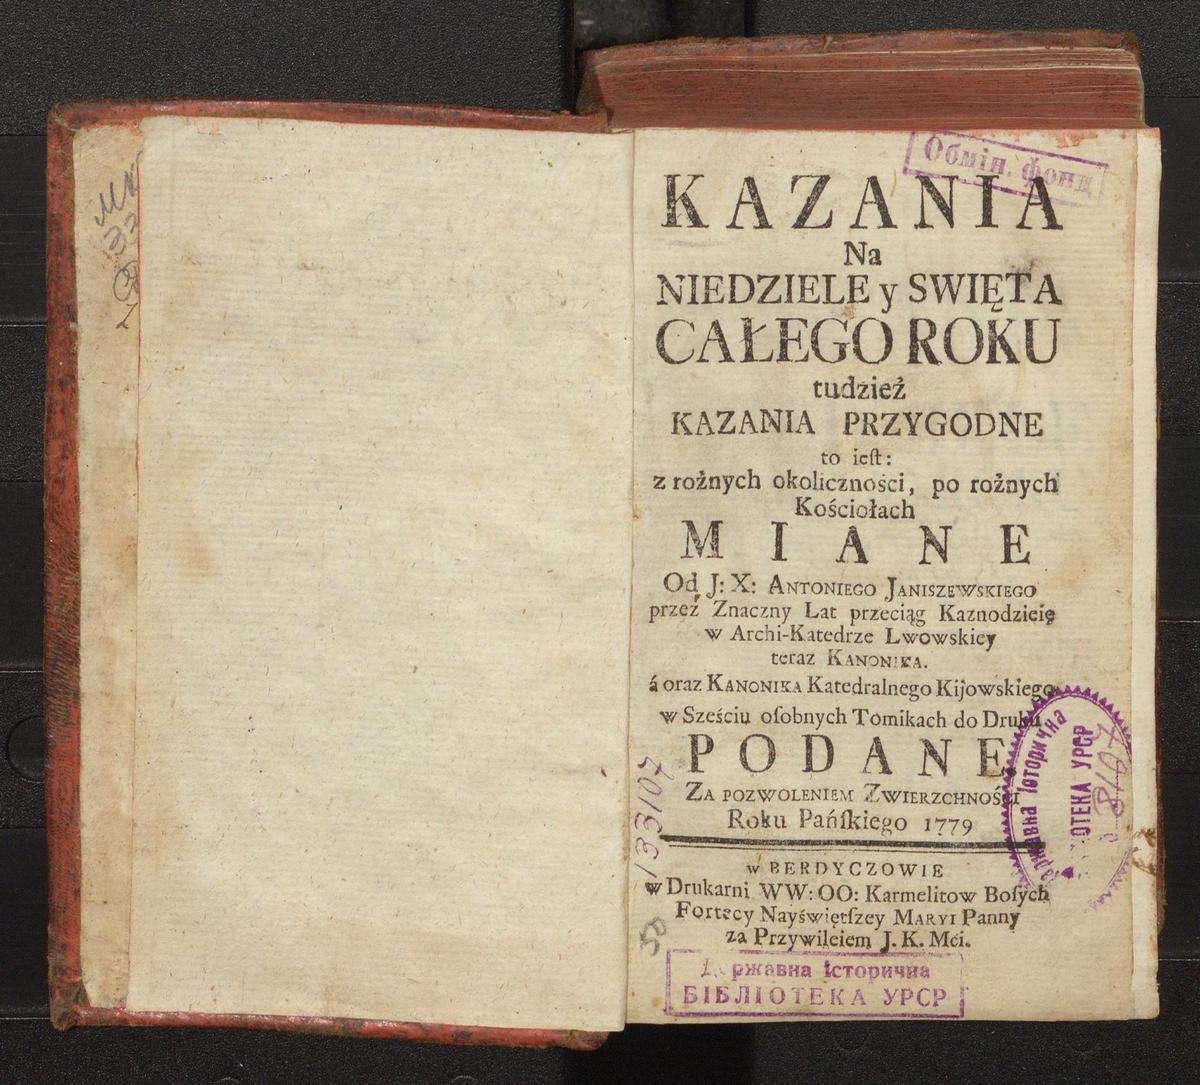 Обмін. фонд
KAZANIA
Na
NIEDZIELE y SWIĘTA
CAŁEGO ROKU
tudzież
KAZANIA PRZYGODNE
to ieſt:
z rożnych okoliczności, po rożnych
Kościołach
MIANE
Od J: X: ANTONIEGO JANISZEWSKIEGO
przeź Znaczny Lat przeciąg Kaznodzieię
w Archi-Katedrze Lwowskiey
teraz KANONIKA.
á oraz KANONIKA Katedralnego Kijowskiego
w Sześciu oſobnych Tomikach do Druku
PODANE.
ZA POZWOLENIEM ZWIERZCHNOŚCI
Roku Pańſkiego 1779
w BERDYCZOWIE
w Drukarni WW: OO: Karmelitow Boſych
Fortecy Nayświętſzey MARYI Panny
za Przywileiem J. K. Mći.
Державна Історична
БІБЛІОТЕКА УРСР
133107
50